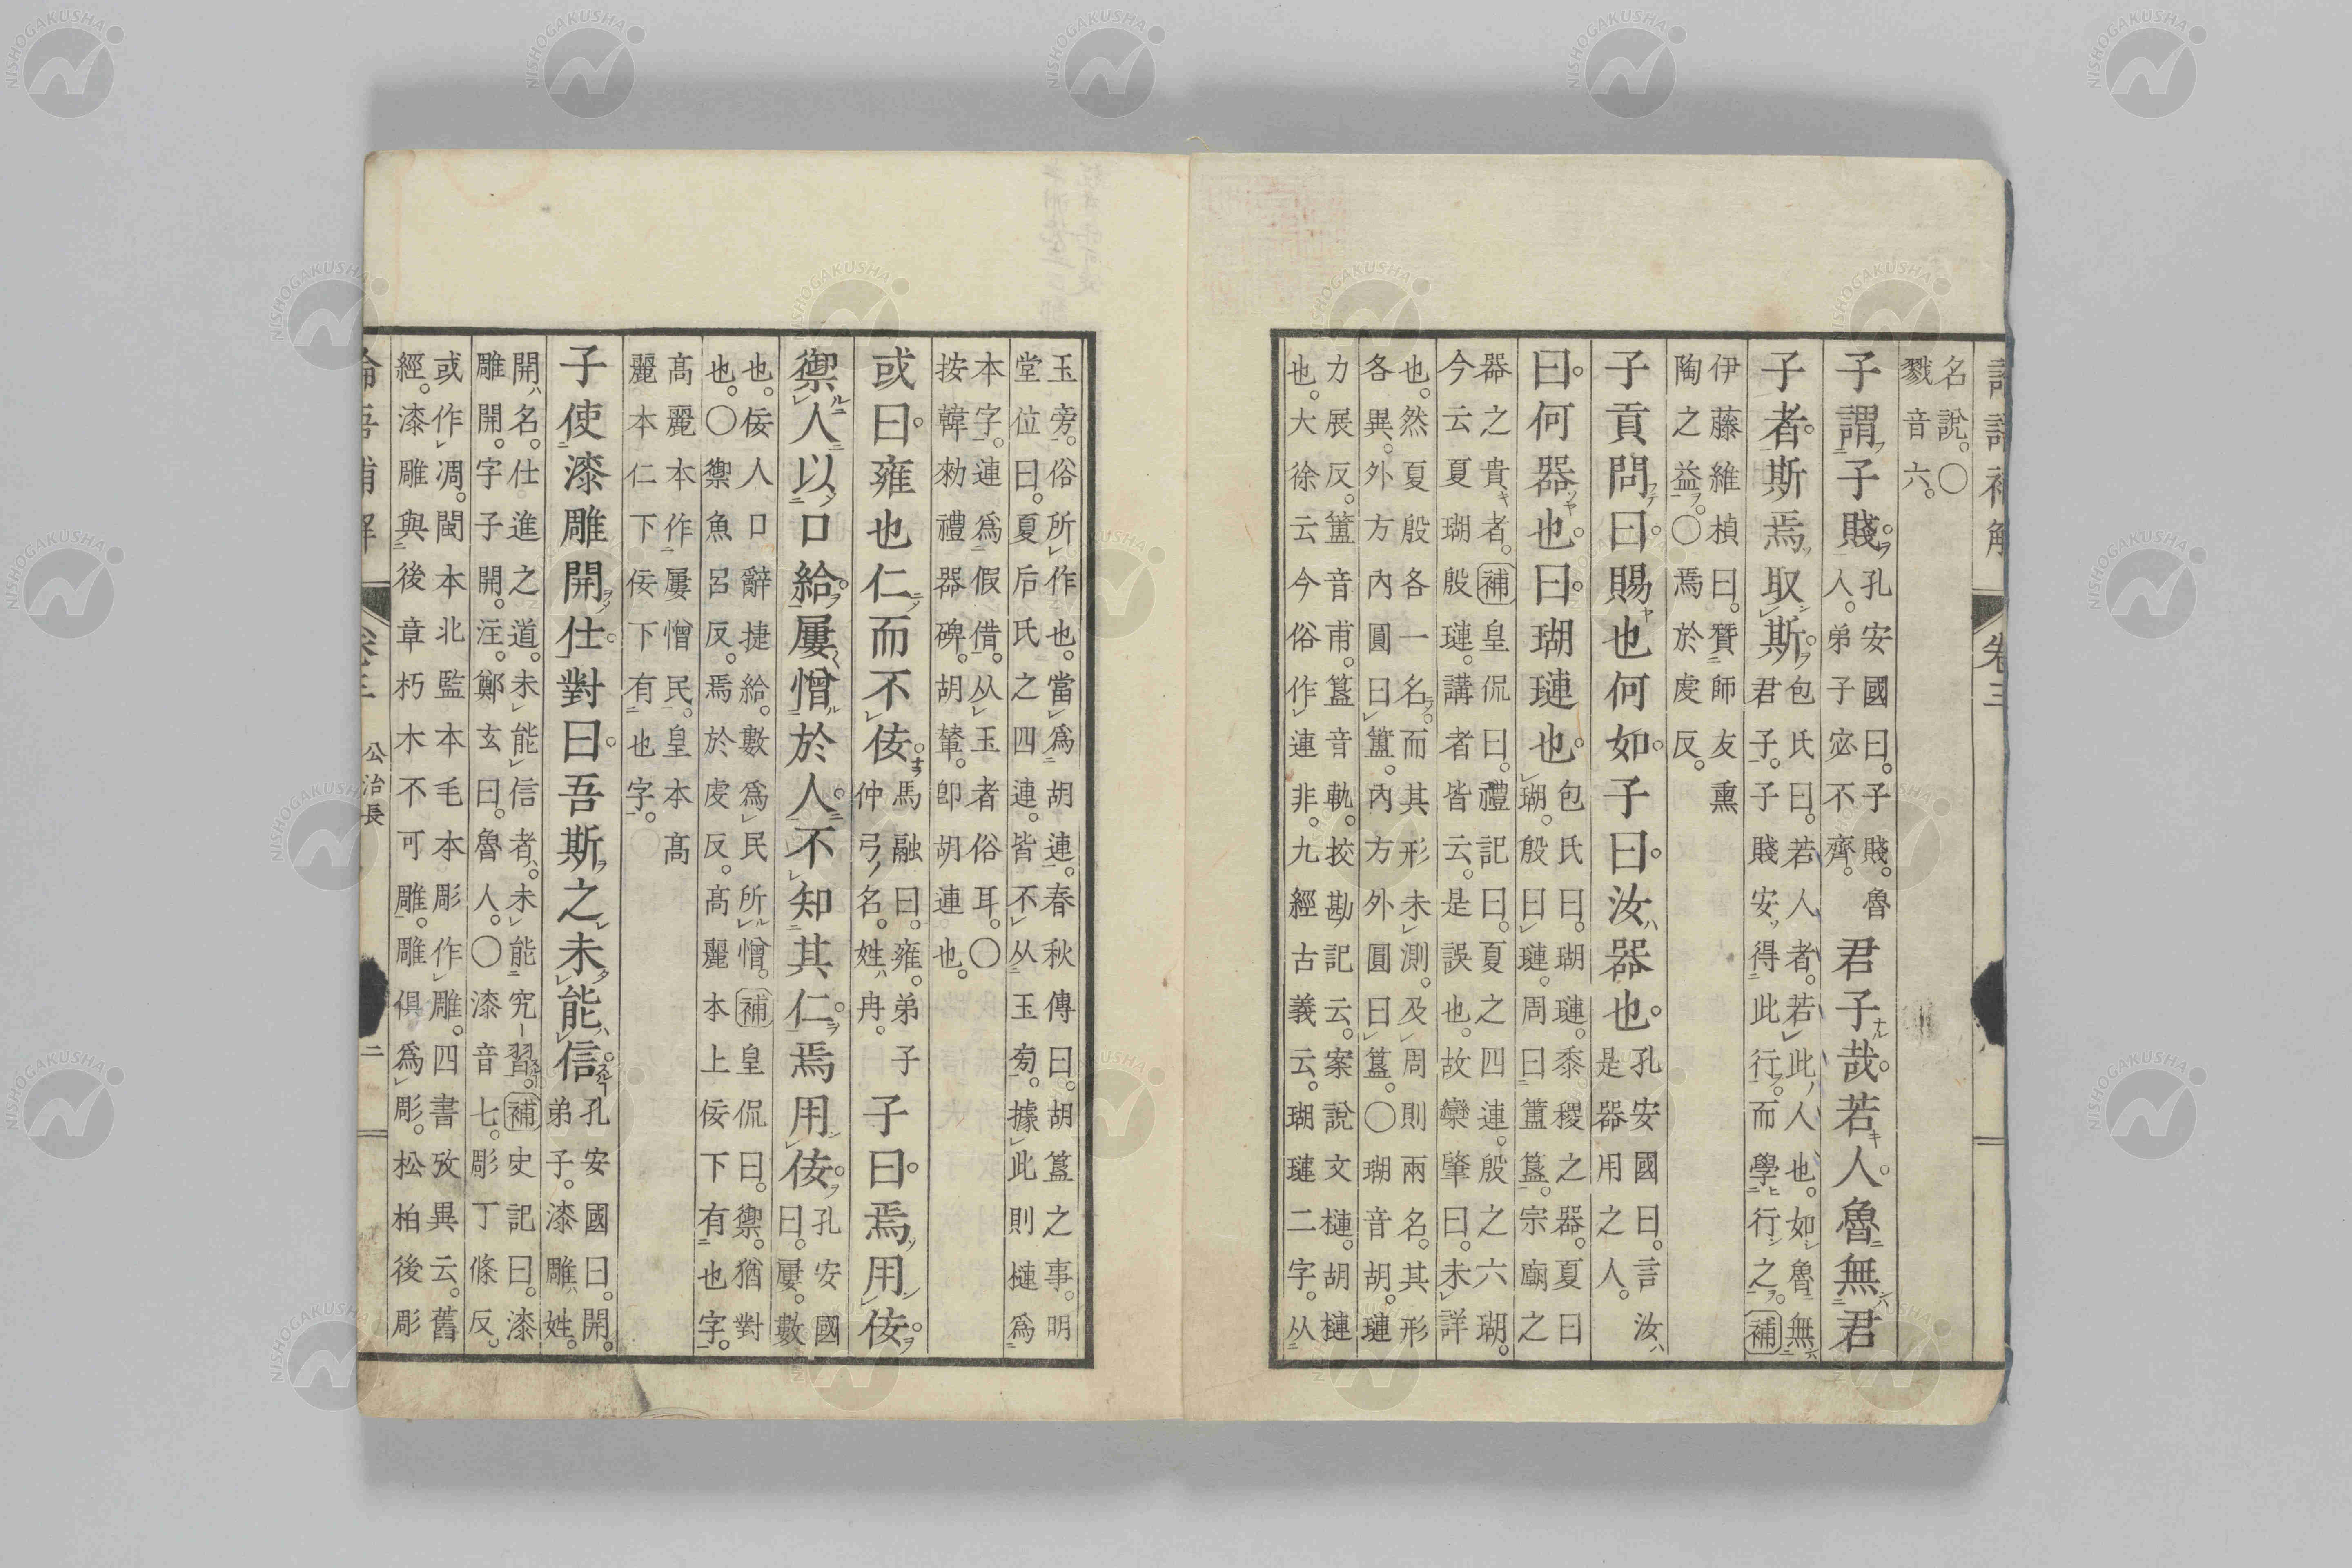 名說。〇
戮音六。
子謂子賤。
孔安國曰。子賤。魯
人。弟子宓不齊。
君子哉。若人。魯無君
子者。斯焉取斯。
包氏曰。若人者。若此人也。如魯無
君子。子賤安得此行。而學行之。補
伊藤維楨曰。贊師友熏
陶之益。〇焉於虔反。
子貢問曰。賜也何如。子曰。汝器也。
孔安國曰。言汝
是器用之人。
曰。何器也。曰。瑚璉也。
包氏曰。瑚璉。黍稷之器。夏曰
瑚。殷曰璉。周曰簠簋。宗廟之
器之貴者。補皇侃曰。禮記曰。夏之四連。殷之六瑚。
今云夏瑚殷璉。講者皆云。是誤也。故欒肇曰。未詳
也。然夏殷各一名。而其形未測。及周則兩名。其形
各異。外方內圓曰簠。內方外圓曰簋。〇瑚音胡。璉
力展反。簠音甫。簋音軌。挍勘記云。案說文槤。胡槤
也。大徐云今俗作連非。九經古義云。瑚璉二字。从
玉旁。俗所作也。當爲胡連。春秋傳曰。胡簋之事。明
堂位曰。夏后氏之四連。皆不从玉旁。據此則槤爲
本字。連爲假借。从玉者俗耳。〇
按韓勑禮器碑。胡輦。卽胡連也。
或曰。雍也仁而不佞。
馬融曰。雍。弟子
仲弓名。姓冉。
子曰。焉用佞。
禦人以口給。屢憎於人。不知其仁。焉用佞。
孔安國
曰。屢。數
也。佞人口辭捷給。數爲民所憎。補皇侃曰。禦。猶對
也。〇禦魚呂反。焉於虔反。高麗本上佞下有也字。
高麗本作屢憎民。皇本高
麗本仁下佞下有也字。
子使漆雕開仕。對曰。吾斯之未能信。
孔安國曰。開。
弟子。漆雕姓。
開名。仕進之道。未能信者。未能究習。補史記曰。漆
雕開。字子開。注。鄭玄曰。魯人。〇漆音七。彫丁條反。
或作凋。閩本北監本毛本彫作雕。四書攷異云。舊
經。漆雕與後章朽木不可雕。雕俱爲彫。松柏後彫
公冶長
二